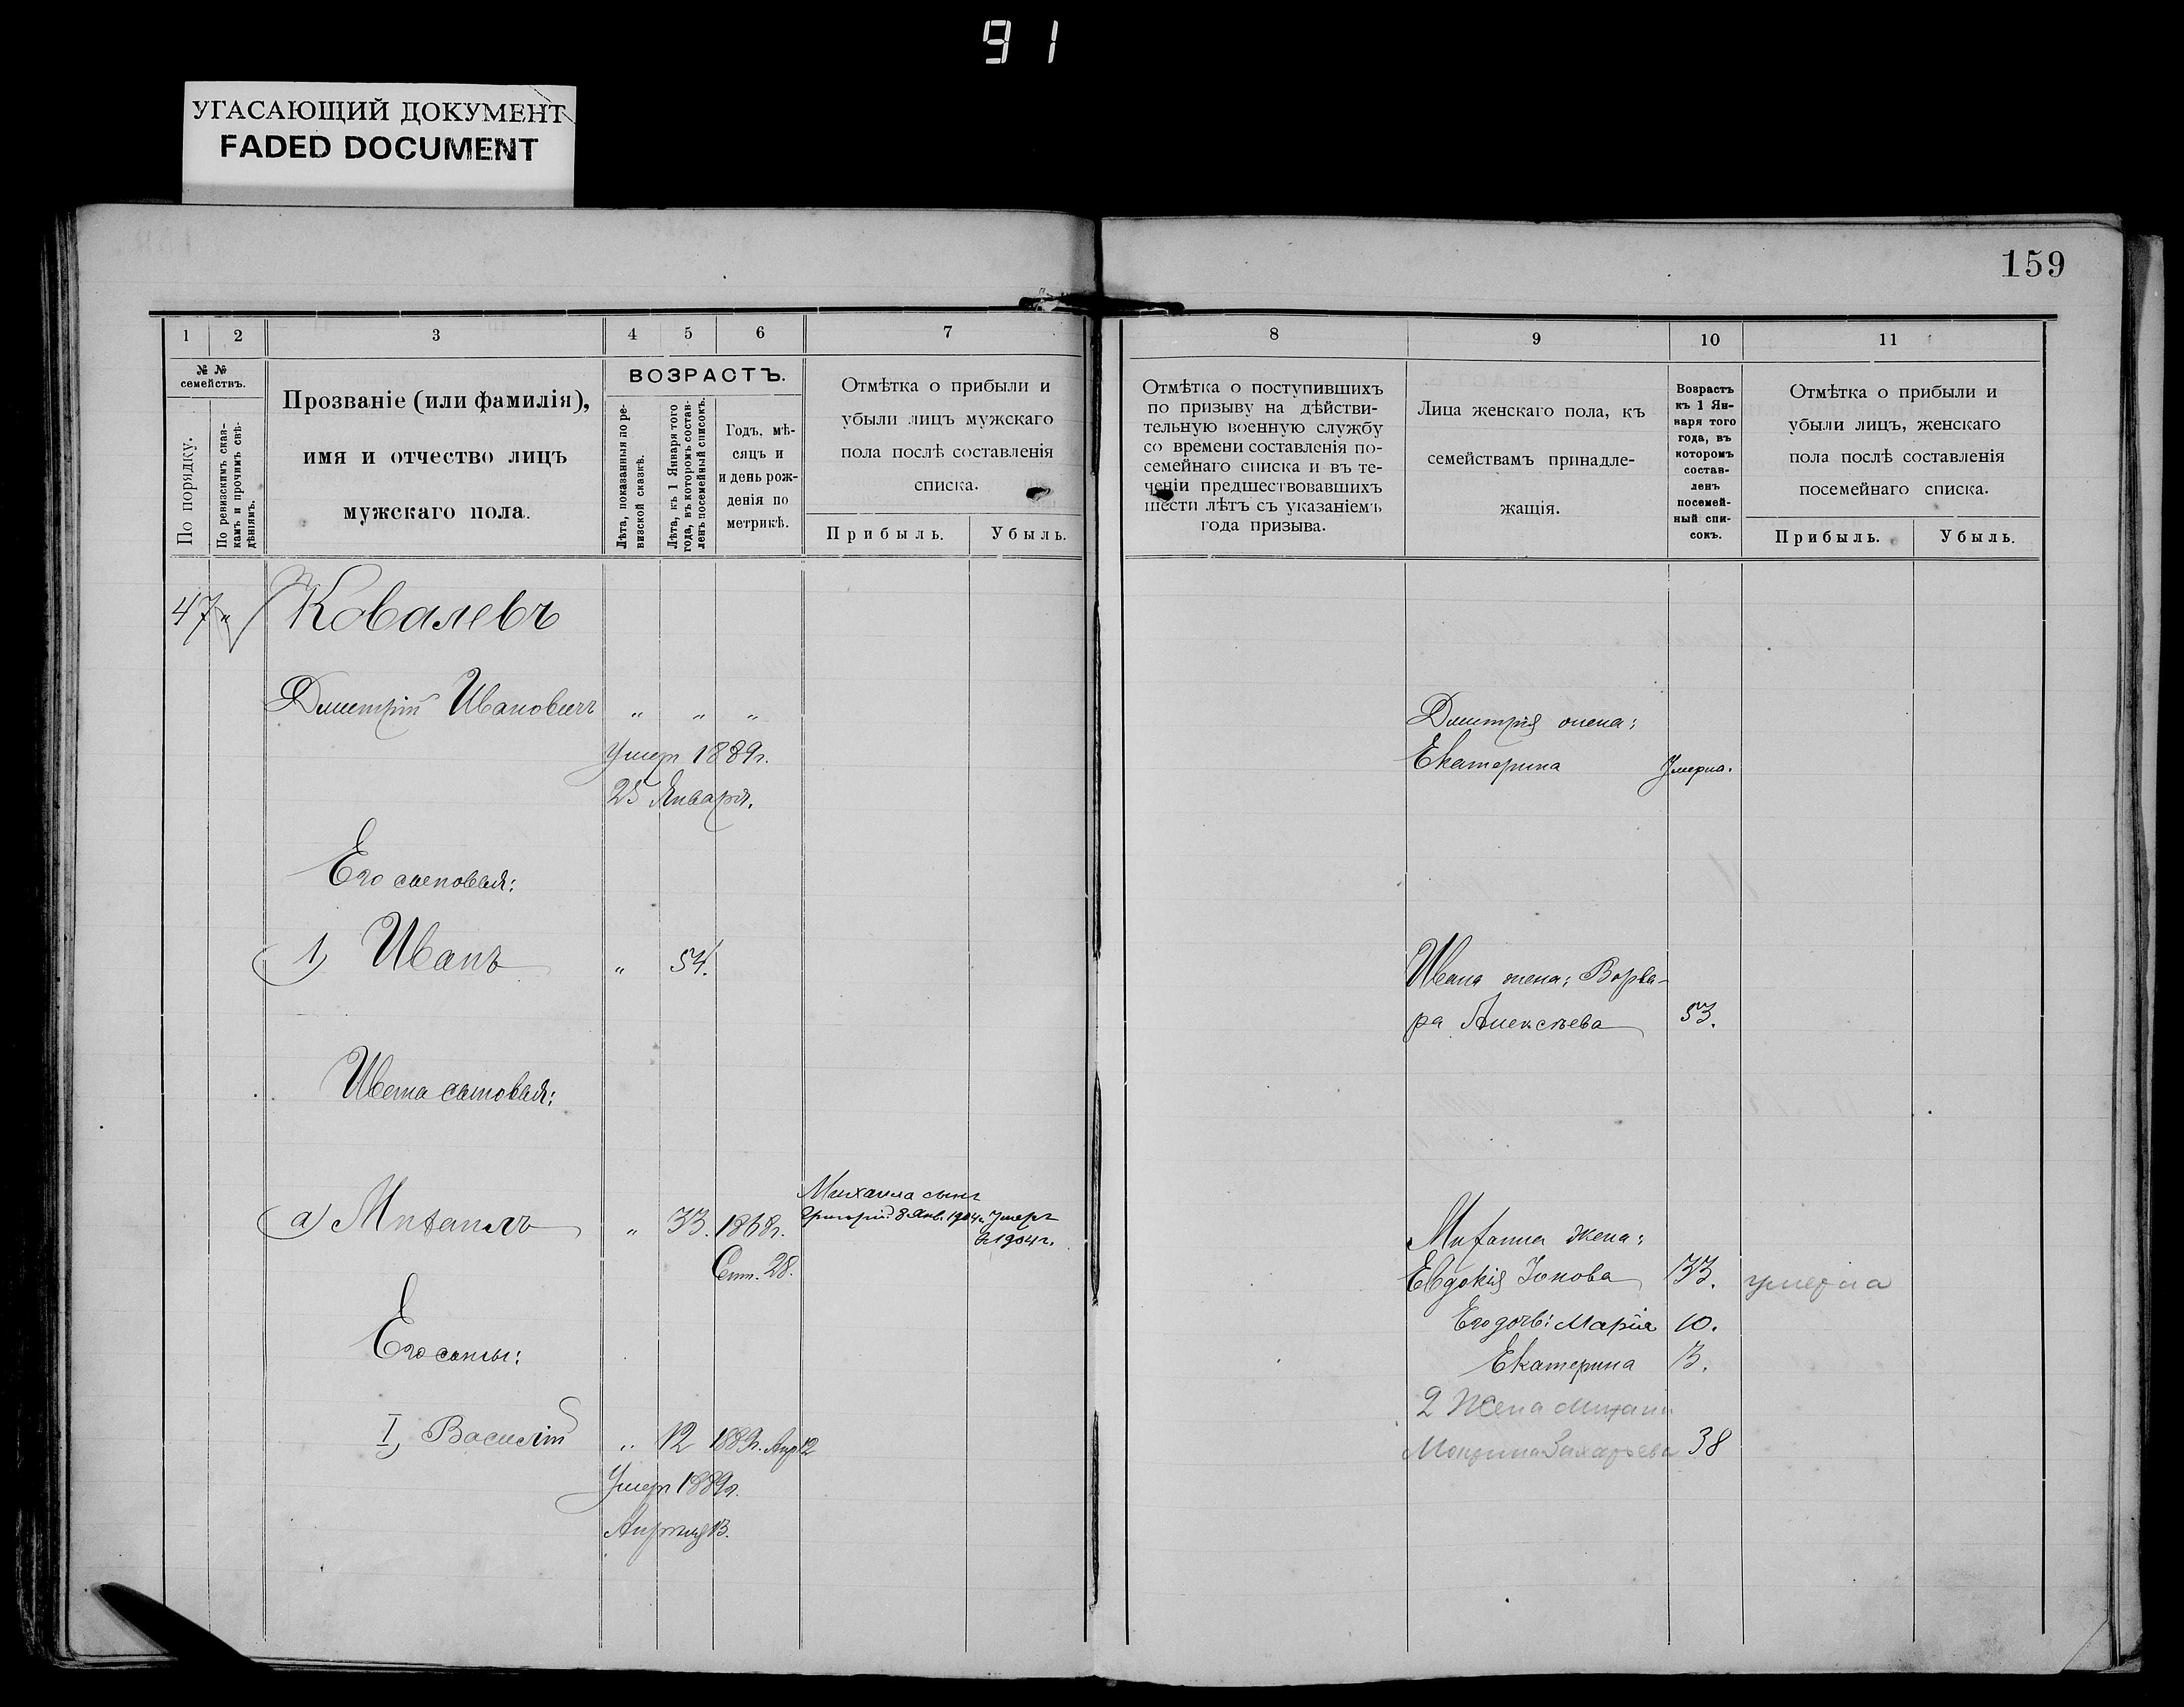 91
УГАСАЮЩИЙ ДОКУМЕНТ
FADED DOCUMENT
159
1 2 3 4 5 6 7
№ №
семействъ.
По порядку.
По ревизскимъ сказ-
камъ и прочимъ свѣ-
дѣніямъ.
Прозваніе (или фамилія),
имя и отчество лицъ
мужскаго пола.
ВОЗРАСТЪ.
Лѣта, показанныя по ре-
визской сказкѣ.
Лѣта, къ 1 Января того
года, въ которомъ состав-
ленъ посемейный списокъ.
Годъ, мѣ-
сяцъ и
и день рож-
денія по
метрикѣ.
Отмѣтка о прибыли и
убыли лицъ мужскаго
пола послѣ составленія
списка.
Прибыль. Убыль.
8 9 10 11
Отмѣтка о поступившихъ
по призыву на дѣйстви-
тельную военную службу
со времени составленія по-
семейнаго списка и въ те-
ченіи предшествовавшихъ
шести лѣтъ съ указаніемъ
года призыва.
Лица женскаго пола, къ
семействамъ принадле-
жащія.
Возрастъ
къ 1 Ян-
варя того
года, въ
которомъ
состав-
ленъ
посемей-
ный спи-
сокъ.
Отмѣтка о прибыли и
убыли лицъ, женскаго
пола послѣ составленія
посемейнаго списка.
Прибыль. Убыль.
47 " Ковалевъ
Дмитрій Ивановичъ " " "
Умеръ 1889г.
25 Января.
Его сыновья:
1) Иванъ " 54.
Ивана сыновья:
а) Михаилъ " 33. 1868г.
Сент. 28.
Михаила сынъ
Григорій 8 Янв. 1904г. Умеръ
въ 1904г.
Его сыны:
I) Василій " 12 1889г. Апр 12
Умеръ 1889г.
Апрѣля 13.
Дмитрія жена:
Екатерина Умерла.
Ивана жена: Варва-
ра Алексѣева 53.
Михаила жена:
Евдокія Іонова 33. умерла
Его дочь: Марія 10.
Екатерина 3.
2 Жена Михаил
Захарьева 38